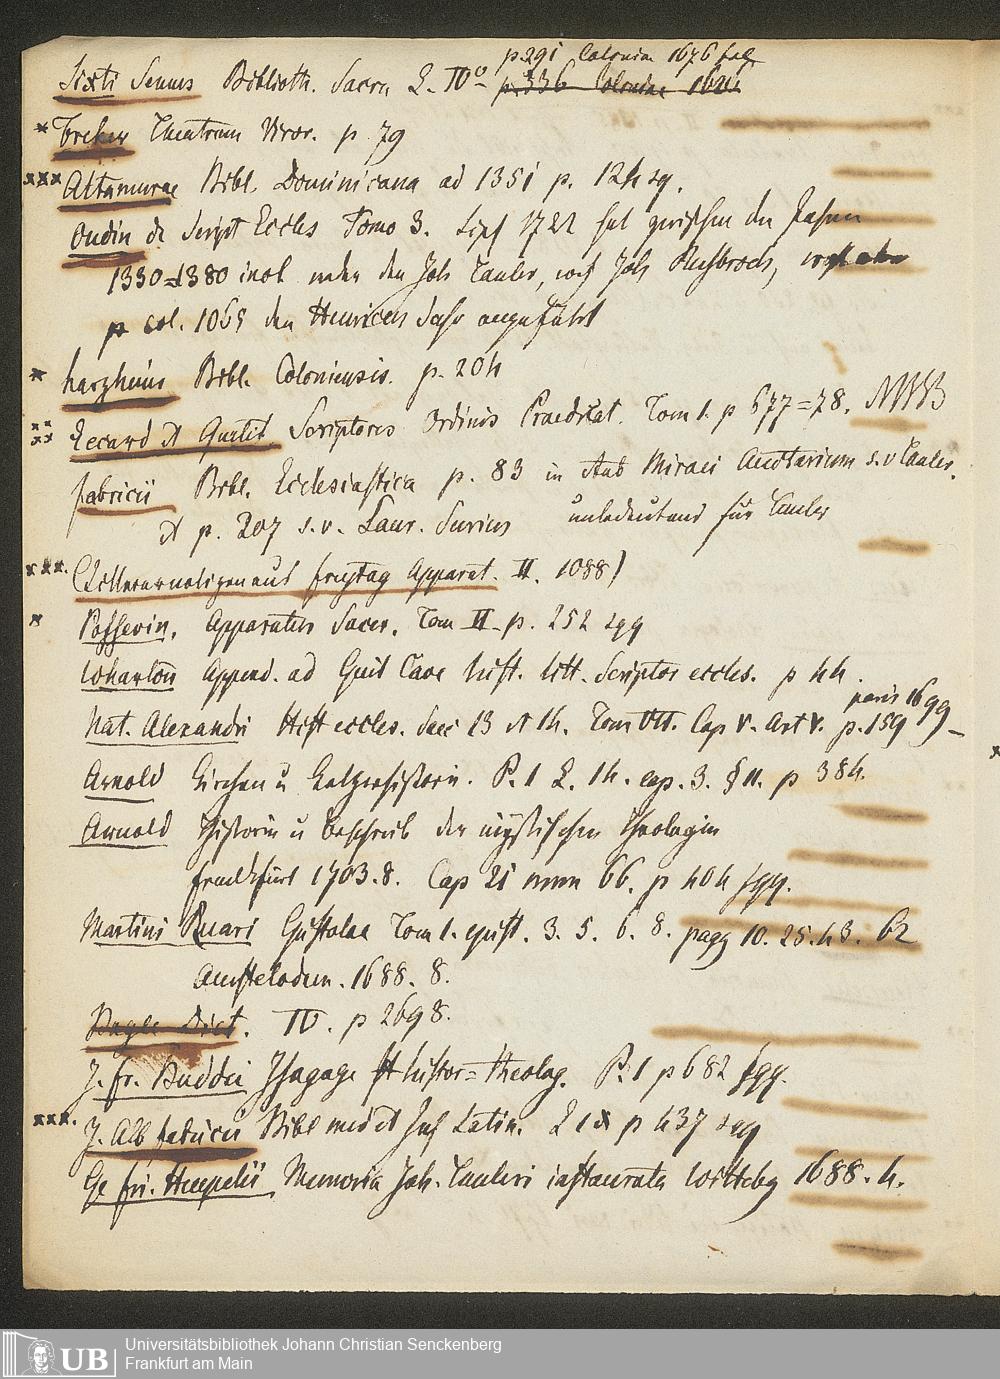 p. 291 Coloniae 1676 fol
Sixti Senens Biblioth. Sacra L. IVo p. 336 Coloniae 1626
* Freher Theatrum Viror. p 79
*** Altamurae Bibl. Dominicana ad 1351 p. 124 sq.
Oudin de Script Eccles Tomo 3. Lips 1722 hat zwischen den Jahren
1330=1380 den Joh Tauler, Joh Rusbroch,
p col. 1065 den Henricus Suso angeführt
* harzheim Bibl. Coloniensis. p. 204
Eccard et Quetif Scriptores Ordinis Praedicat. Tom 1. p 677=78.
fabricii Bibl. Ecclesiastica p. 83 in Aub Miraei Auctarium s.v Tauler.
et p. 207 s.v. Laur. Surius unbedeutend für Tauler
***. freytag Apparat. II. 1088)
* Possevin. Apparatus Sacer. Tom II p. 252 sqq
Wharton Append. ad Guil Cave hist. litt. Scriptor eccles. p 44.
paris 1699
Nat. Alexandri Hist eccles. Saec 13 et 14. Tom VII. Cap V. Art V. p. 159
Arnold Kirchen u Ketzerhistorie. P. 1 L. 14. cap. 3. § 11. p 384.
Arnold Historie u Beschreib der mystischen Theologie
Frankfurt 1703. 8. Cap 21 num 66. p 404 sqq.
Martini Ruari Epistolae Tom 1. epist. 3. 5. 6. 8. pagg 10. 25. 43. 62
Amstelodam. 1688. 8.
Bayle Dict. IV. p 2698.
J. Fr. Buddei Isagoge histor=theolog. P. 1 p 682 sqq.
***. J. Alb fabricii Bibl med et Inf Latin. L p 437 sqq
Memoria Joh. Tauleri instaurata Witteb 1688. 4.
UB Universitätsbibliothek Johann Christian Senckenberg
Frankfurt am Main